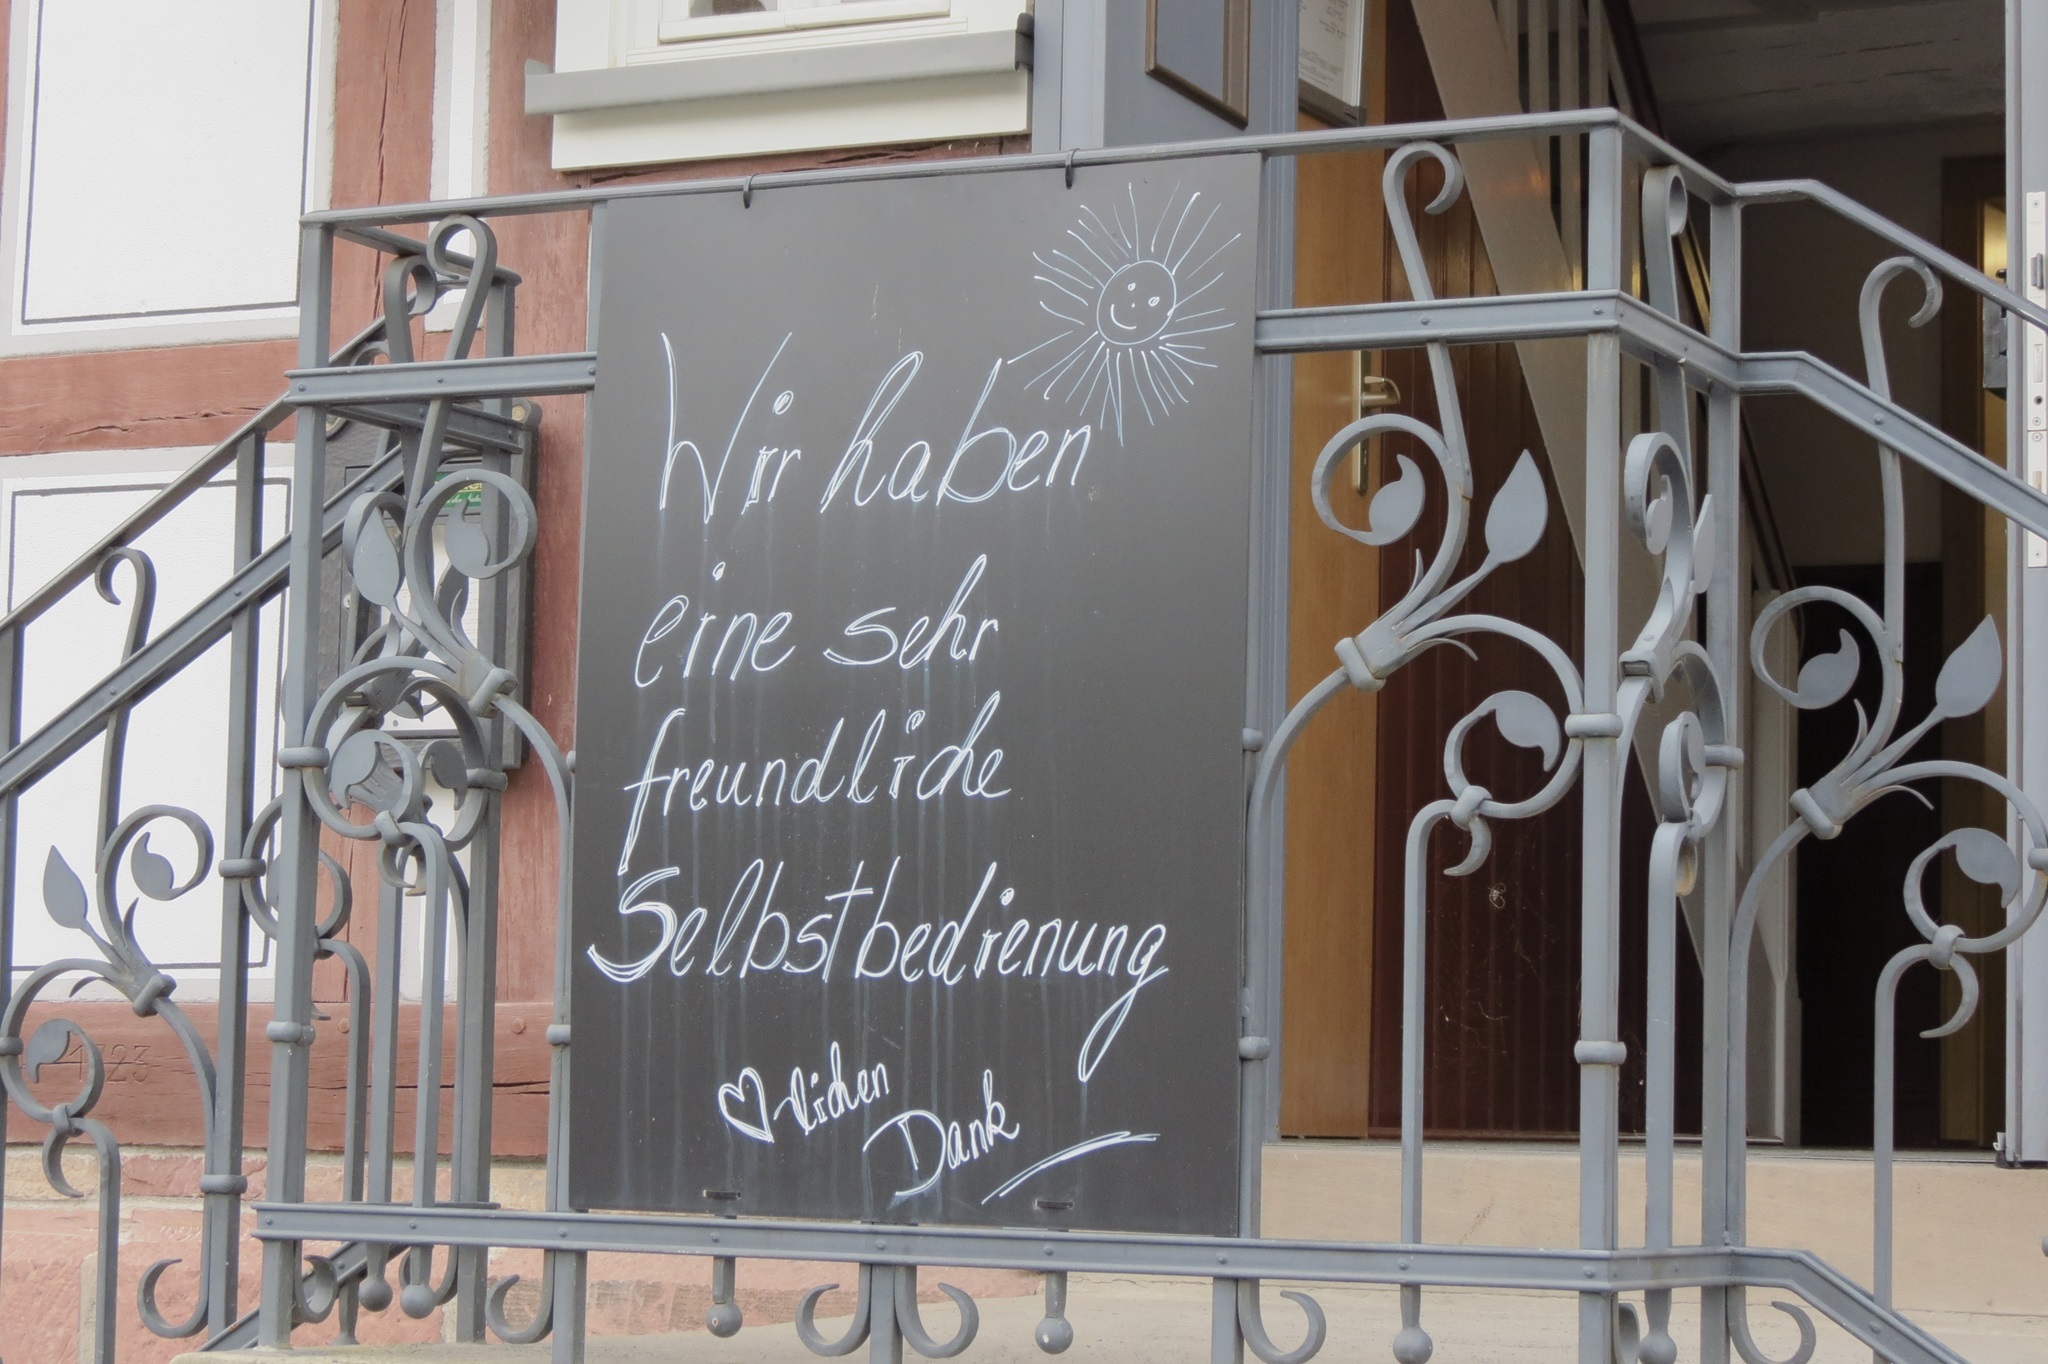 Wir haben
eine sehr
freundliche
Selbstbedienung
♡-lichen
Dank
1723